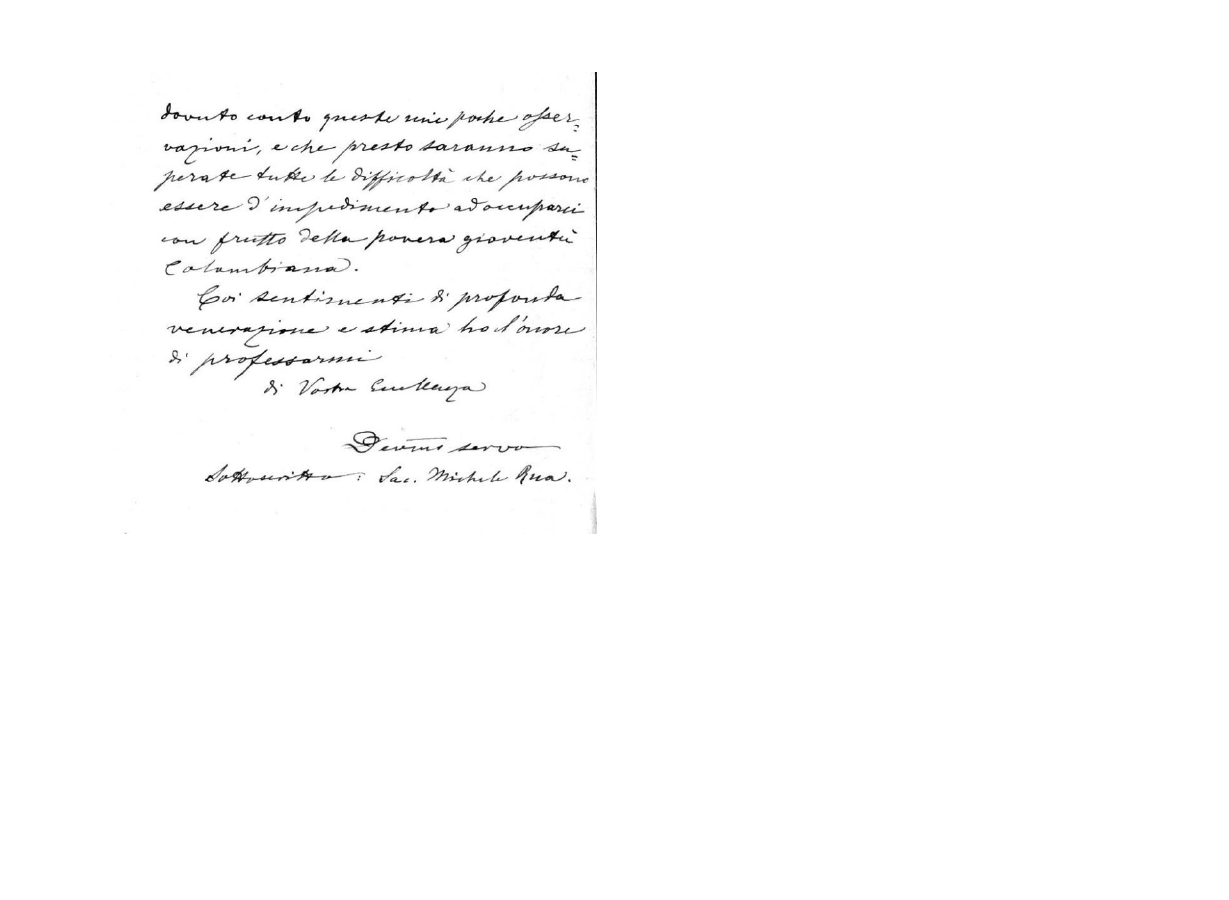 dovuto conto queste mie poche osser=
vazioni, e che presto saranno su=
perate tutte le difficoltà che possono
essere d'impedimento ad occuparci
con frutto della povera gioventù
Colombiana.
Coi sentimenti di profonda
venerazione e stima ho l'onore
di professarmi
di Vostra Eccellenza
Devmo servo
Sottoscritto: Sac. Michele Rua.